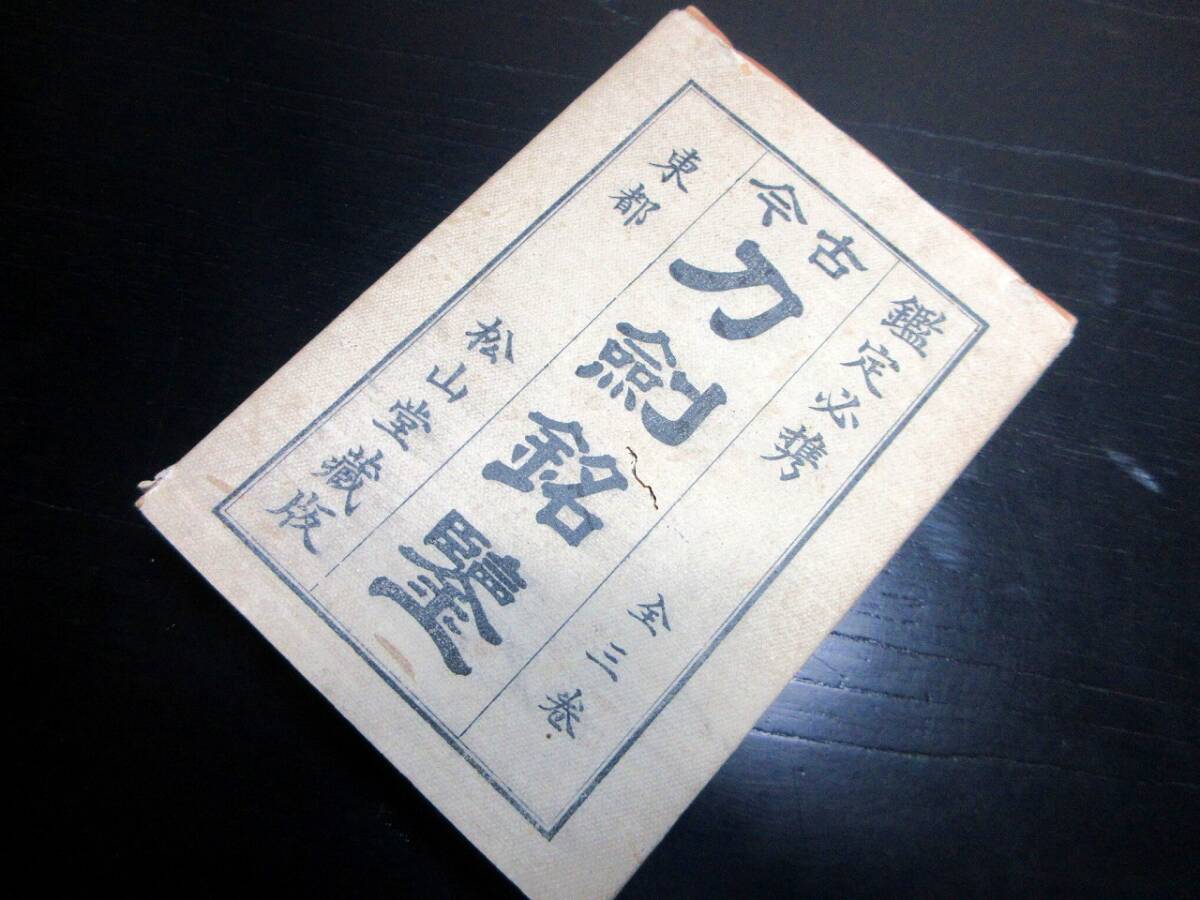 鑑定必携
全三卷
古今
刀劒銘鑒
東都
松山堂藏版